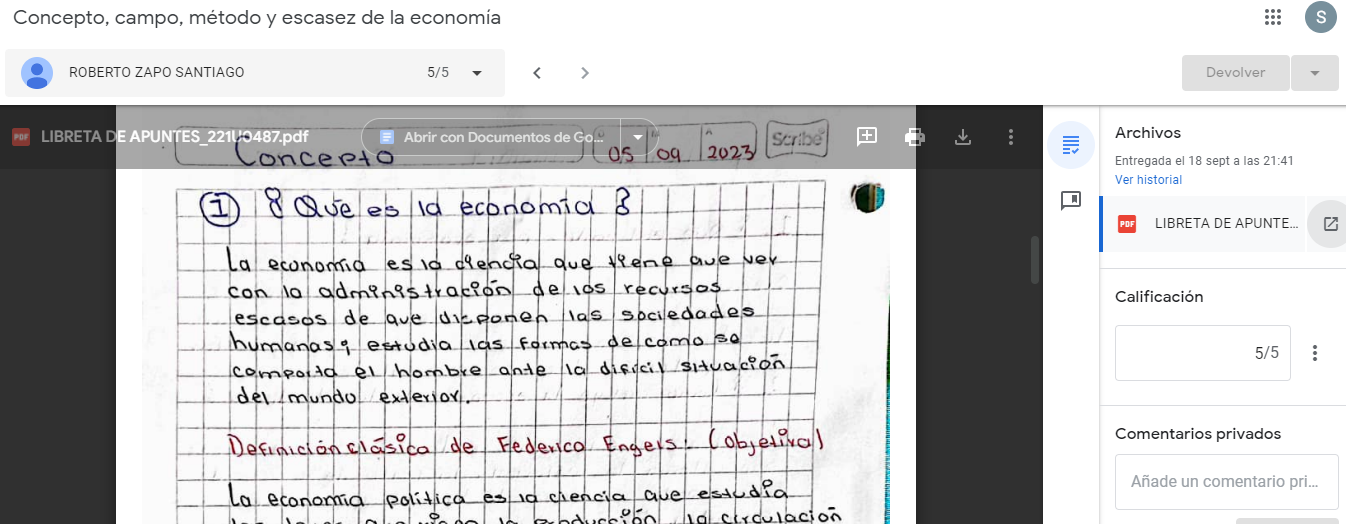 Concepto, campo, método y escasez de la economía
S
ROBERTO ZAPO SANTIAGO
5/5
Devolver
PDF
LIBRETA DE APUNTES_221U0487.pdf
Abrir con Documentos de Go...
Concepto
05 09 2023
Scribe
1 ¿Que es la economía?
La economía es la ciencia que tiene que ver
con la administración de los recursos
escasos de que disponen las sociedades
humanas; estudia las formas de como se
comporta el hombre ante la dificil situación
del mundo exterior.
Definición clásica de Federico Engels: (objetiva)
La economía política es la ciencia que estudia
la producción, la circulación
Archivos
Entregada el 18 sept a las 21:41
Ver historial
PDF
LIBRETA DE APUNTE...
Calificación
5/5
Comentarios privados
Añade un comentario pri...